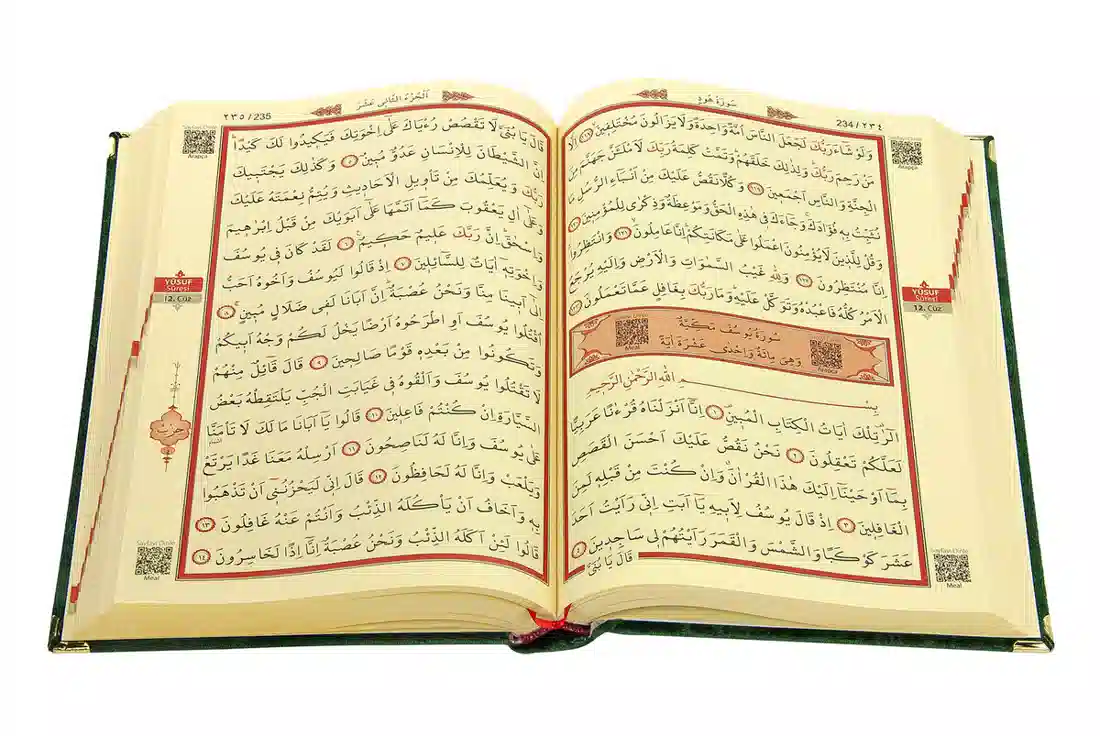 سورة هود
234/٢٣٤
Sayfayı Dinle
Arapça
وَلَوْ شَاءَ رَبُّكَ لَجَعَلَ النَّاسَ اُمَّةً وَاحِدَةً وَلَا يَزَالُونَ مُخْتَلِفِينَ ﴿١١٨﴾ اِلَّا
مَنْ رَحِمَ رَبُّكَ وَلِذٰلِكَ خَلَقَهُمْ وَتَمَّتْ كَلِمَةُ رَبِّكَ لَاَمْلَـَٔنَّ جَهَنَّمَ مِنَ
الْجِنَّةِ وَالنَّاسِ اَجْمَعِينَ ﴿١١٩﴾ وَكُلًّا نَقُصُّ عَلَيْكَ مِنْ اَنْبَاءِ الرُّسُلِ مَا
نُثَبِّتُ بِهِ فُؤٰادَكَ وَجَاءَكَ فِي هٰذِهِ الْحَقُّ وَمَوْعِظَةٌ وَذِكْرٰى لِلْمُؤْمِنِينَ ﴿١٢٠﴾
وَقُلْ لِلَّذِينَ لَا يُؤْمِنُونَ اعْمَلُوا عَلٰى مَكَانَتِكُمْ اِنَّا عَامِلُونَ ﴿١٢١﴾ وَانْتَظِرُوا
اِنَّا مُنْتَظِرُونَ ﴿١٢٢﴾ وَلِلّٰهِ غَيْبُ السَّمٰوَاتِ وَالْاَرْضِ وَاِلَيْهِ يُرْجَعُ
الْاَمْرُ كُلُّهُ فَاعْبُدْهُ وَتَوَكَّلْ عَلَيْهِ وَمَا رَبُّكَ بِغَافِلٍ عَمَّا تَعْمَلُونَ ﴿١٢٣﴾
YÛSUF
Sûresi
12. Cüz
سُورَةُ يُوسُفَ مَكِّيَّةٌ
وَهِيَ مِائَةٌ وَاِحْدٰى عَشْرَةَ اٰيَةً
Meal
Arapça
بِسْمِ اللّٰهِ الرَّحْمٰنِ الرَّحِيمِ
الٓرٰ تِلْكَ اٰيَاتُ الْكِتَابِ الْمُبِينِ ﴿١﴾ اِنَّا اَنْزَلْنَاهُ قُرْءٰنًا عَرَبِيًّا
لَعَلَّكُمْ تَعْقِلُونَ ﴿٢﴾ نَحْنُ نَقُصُّ عَلَيْكَ اَحْسَنَ الْقَصَصِ
بِمَا اَوْحَيْنَا اِلَيْكَ هٰذَا الْقُرْاٰنَ وَاِنْ كُنْتَ مِنْ قَبْلِهِ لَمِنَ
الْغَافِلِينَ ﴿٣﴾ اِذْ قَالَ يُوسُفُ لِاَبِيهِ يَا اَبَتِ اِنِّي رَاَيْتُ اَحَدَ
عَشَرَ كَوْكَبًا وَالشَّمْسَ وَالْقَمَرَ رَاَيْتُهُمْ لِي سَاجِدِينَ ﴿٤﴾
قَالَ يَا بُنَيَّ
Sayfayı Dinle
Meal
اَلْجُزْءُ الثَّانِي عَشَرَ
٢٣٥/235
Sayfayı Dinle
Arapça
قَالَ يَا بُنَيَّ لَا تَقْصُصْ رُءْيَاكَ عَلٰى اِخْوَتِكَ فَيَكِيدُوا لَكَ كَيْدًا
اِنَّ الشَّيْطَانَ لِلْاِنْسَانِ عَدُوٌّ مُبِينٌ ﴿٥﴾ وَكَذٰلِكَ يَجْتَبِيكَ
رَبُّكَ وَيُعَلِّمُكَ مِنْ تَأْوِيلِ الْاَحَادِيثِ وَيُتِمُّ نِعْمَتَهُ عَلَيْكَ
وَعَلٰى اٰلِ يَعْقُوبَ كَمَا اَتَمَّهَا عَلٰى اَبَوَيْكَ مِنْ قَبْلُ اِبْرٰهِيمَ
وَاِسْحٰقَ اِنَّ رَبَّكَ عَلِيمٌ حَكِيمٌ ﴿٦﴾ لَقَدْ كَانَ فِي يُوسُفَ
وَاِخْوَتِهِ اٰيَاتٌ لِلسَّائِلِينَ ﴿٧﴾ اِذْ قَالُوا لَيُوسُفُ وَاَخُوهُ اَحَبُّ
اِلٰى اَبِينَا مِنَّا وَنَحْنُ عُصْبَةٌ اِنَّ اَبَانَا لَفِي ضَلَالٍ مُبِينٍ ﴿٨﴾
اُقْتُلُوا يُوسُفَ اَوِ اطْرَحُوهُ اَرْضًا يَخْلُ لَكُمْ وَجْهُ اَبِيكُمْ
وَتَكُونُوا مِنْ بَعْدِهِ قَوْمًا صَالِحِينَ ﴿٩﴾ قَالَ قَائِلٌ مِنْهُمْ
لَا تَقْتُلُوا يُوسُفَ وَاَلْقُوهُ فِي غَيَابَتِ الْجُبِّ يَلْتَقِطْهُ بَعْضُ
السَّيَّارَةِ اِنْ كُنْتُمْ فَاعِلِينَ ﴿١٠﴾ قَالُوا يَا اَبَانَا مَا لَكَ لَا تَأْمَنَّا
عَلٰى يُوسُفَ وَاِنَّا لَهُ لَنَاصِحُونَ ﴿١١﴾ اَرْسِلْهُ مَعَنَا غَدًا يَرْتَعْ
وَيَلْعَبْ وَاِنَّا لَهُ لَحَافِظُونَ ﴿١٢﴾ قَالَ اِنِّي لَيَحْزُنُنِي اَنْ تَذْهَبُوا
بِهِ وَاَخَافُ اَنْ يَأْكُلَهُ الذِّئْبُ وَاَنْتُمْ عَنْهُ غَافِلُونَ ﴿١٣﴾
قَالُوا لَئِنْ اَكَلَهُ الذِّئْبُ وَنَحْنُ عُصْبَةٌ اِنَّا اِذًا لَخَاسِرُونَ ﴿١٤﴾
YÛSUF
Sûresi
12. Cüz
حزب
Sayfayı Dinle
Meal